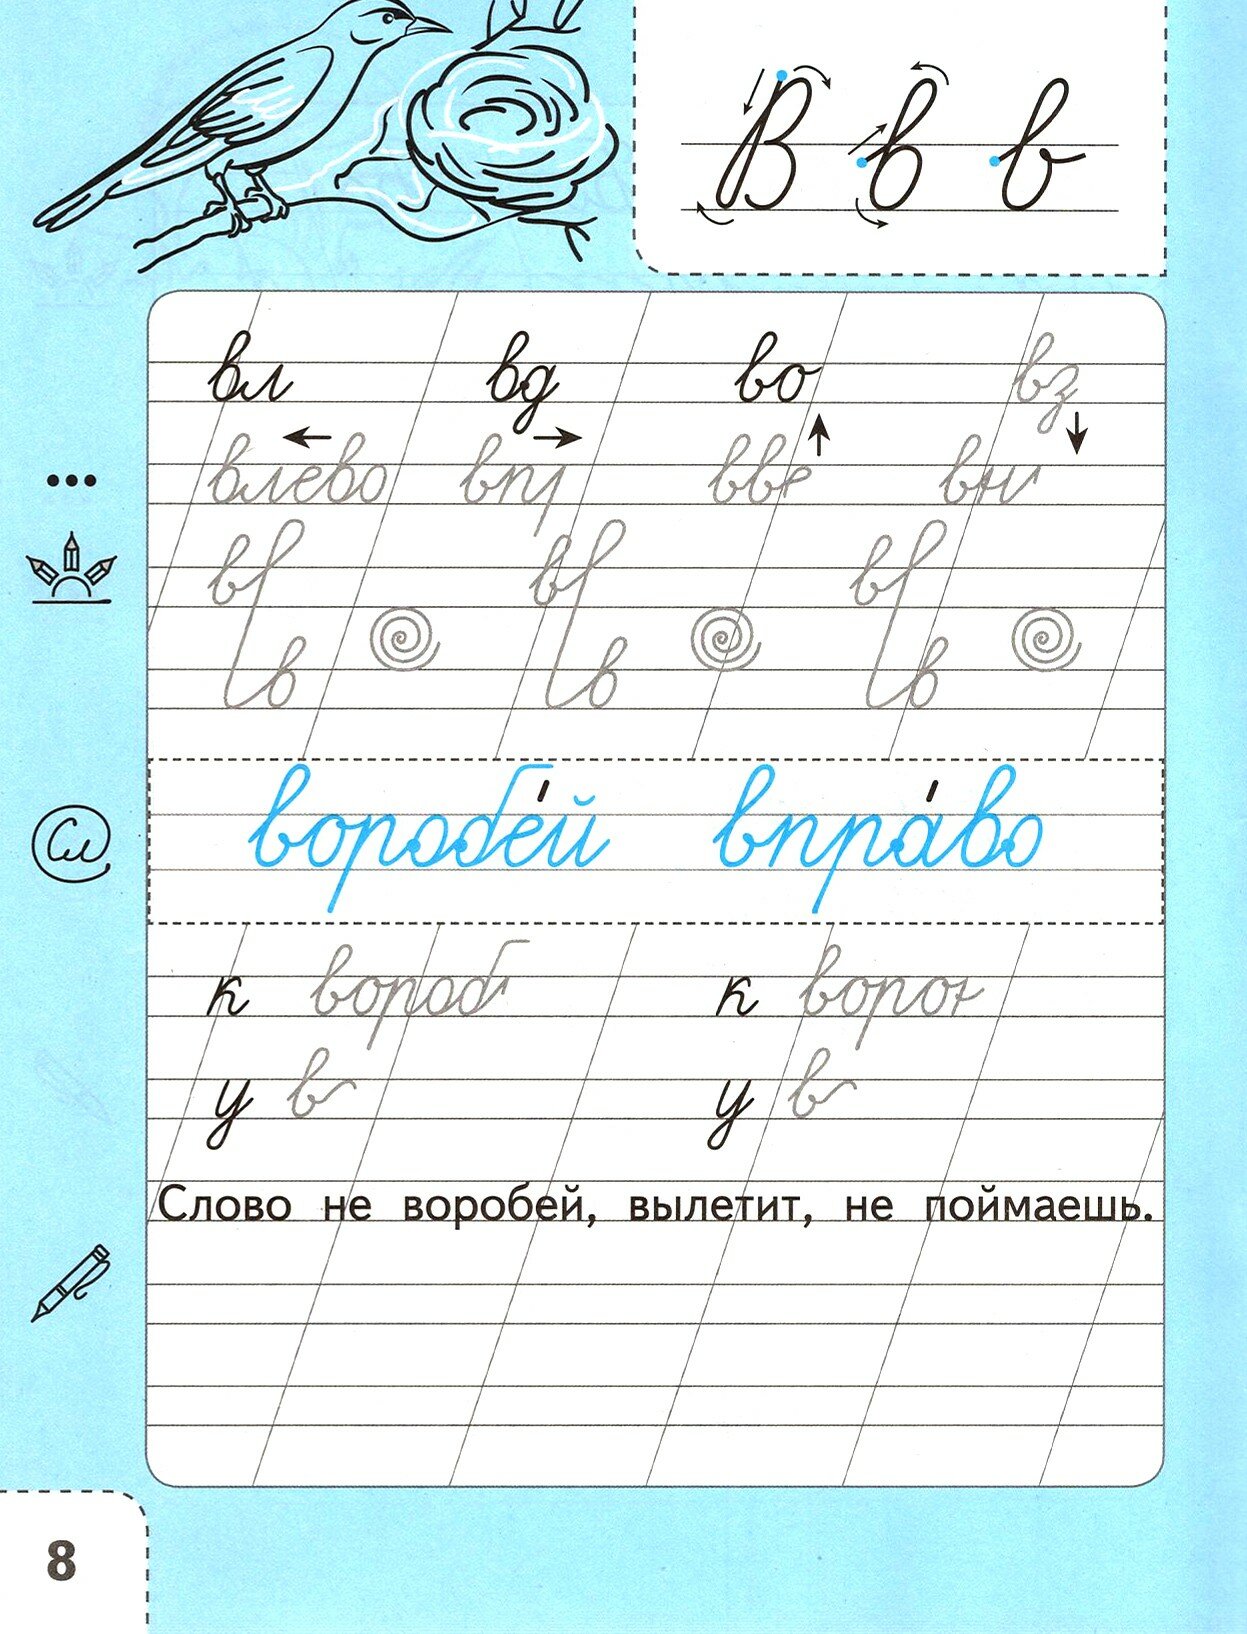 В в в
вл вд во вз
влево впр вве вни
в в в
в в в
воробе́й впра́во
к вороб к ворон
у в у в
Слово не воробей, вылетит, не поймаешь.
8